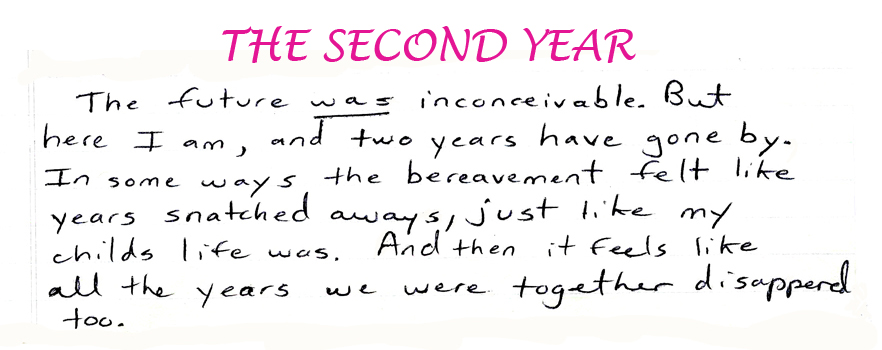 THE SECOND YEAR
The future was inconceivable. But
here I am, and two years have gone by.
In some ways the bereavement felt like
years snatched aways, just like my
childs life was. And then it feels like
all the years we were together disappered
too.